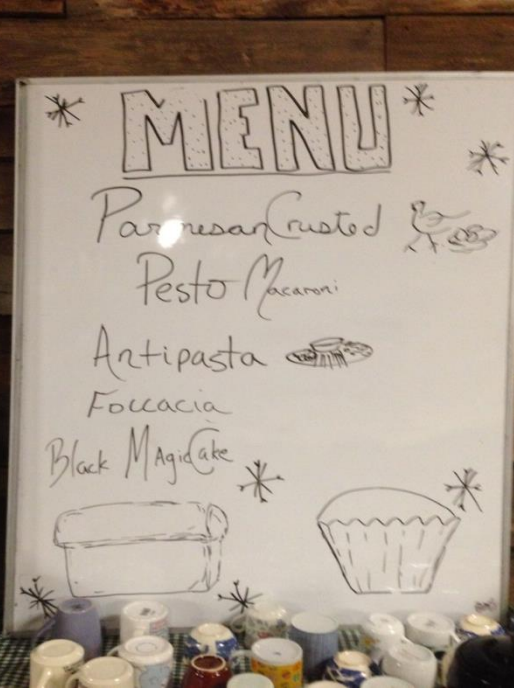 MENU
Parmesan Crusted
Pesto Macaroni
Antipasta
Foccacia
Black Magic Cake